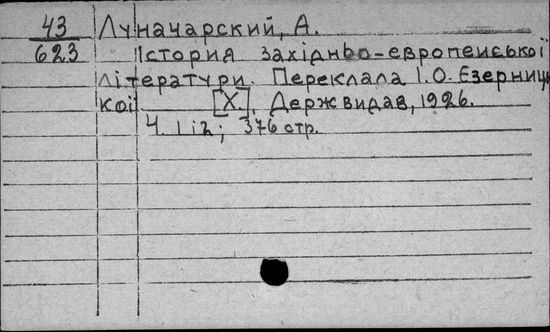 43 Луначарский, А.
623 Істория західньо-европейської
літератури. Переклала І.О. Єзерниць
кої [Х.], Держвидав, 1926.
Ч. 1 і 2; 376 стр.